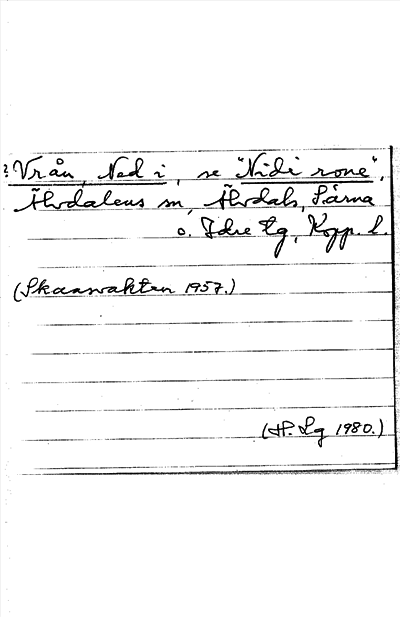 ? Vrån, Ned i, se "Nidi rone",
Älvdalens sn, Älvdals, Särna
o. Idre tg, Kopp. l.
(Skaansvakten 1957.)
(H. Lg 1980.)